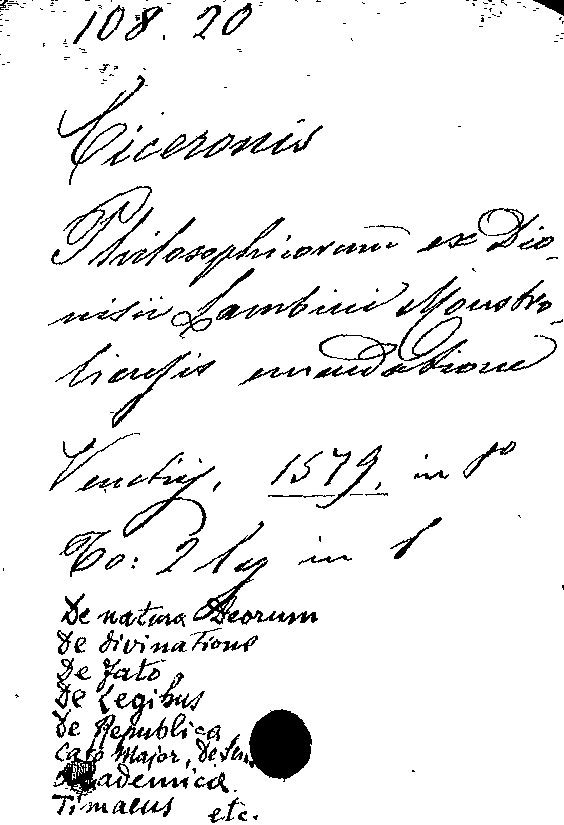 108. 20
Ciceronis
Philosophicorum ex Dio-
nisii Lambini Monstro-
liensis emendatione
Venetijs, 1579, in 8º
To: 2 lig in 8
De natura Deorum
De divinatione
De fato
De Legibus
de Republica
Cato Major, de Sen.
Academica
Timaeus etc.